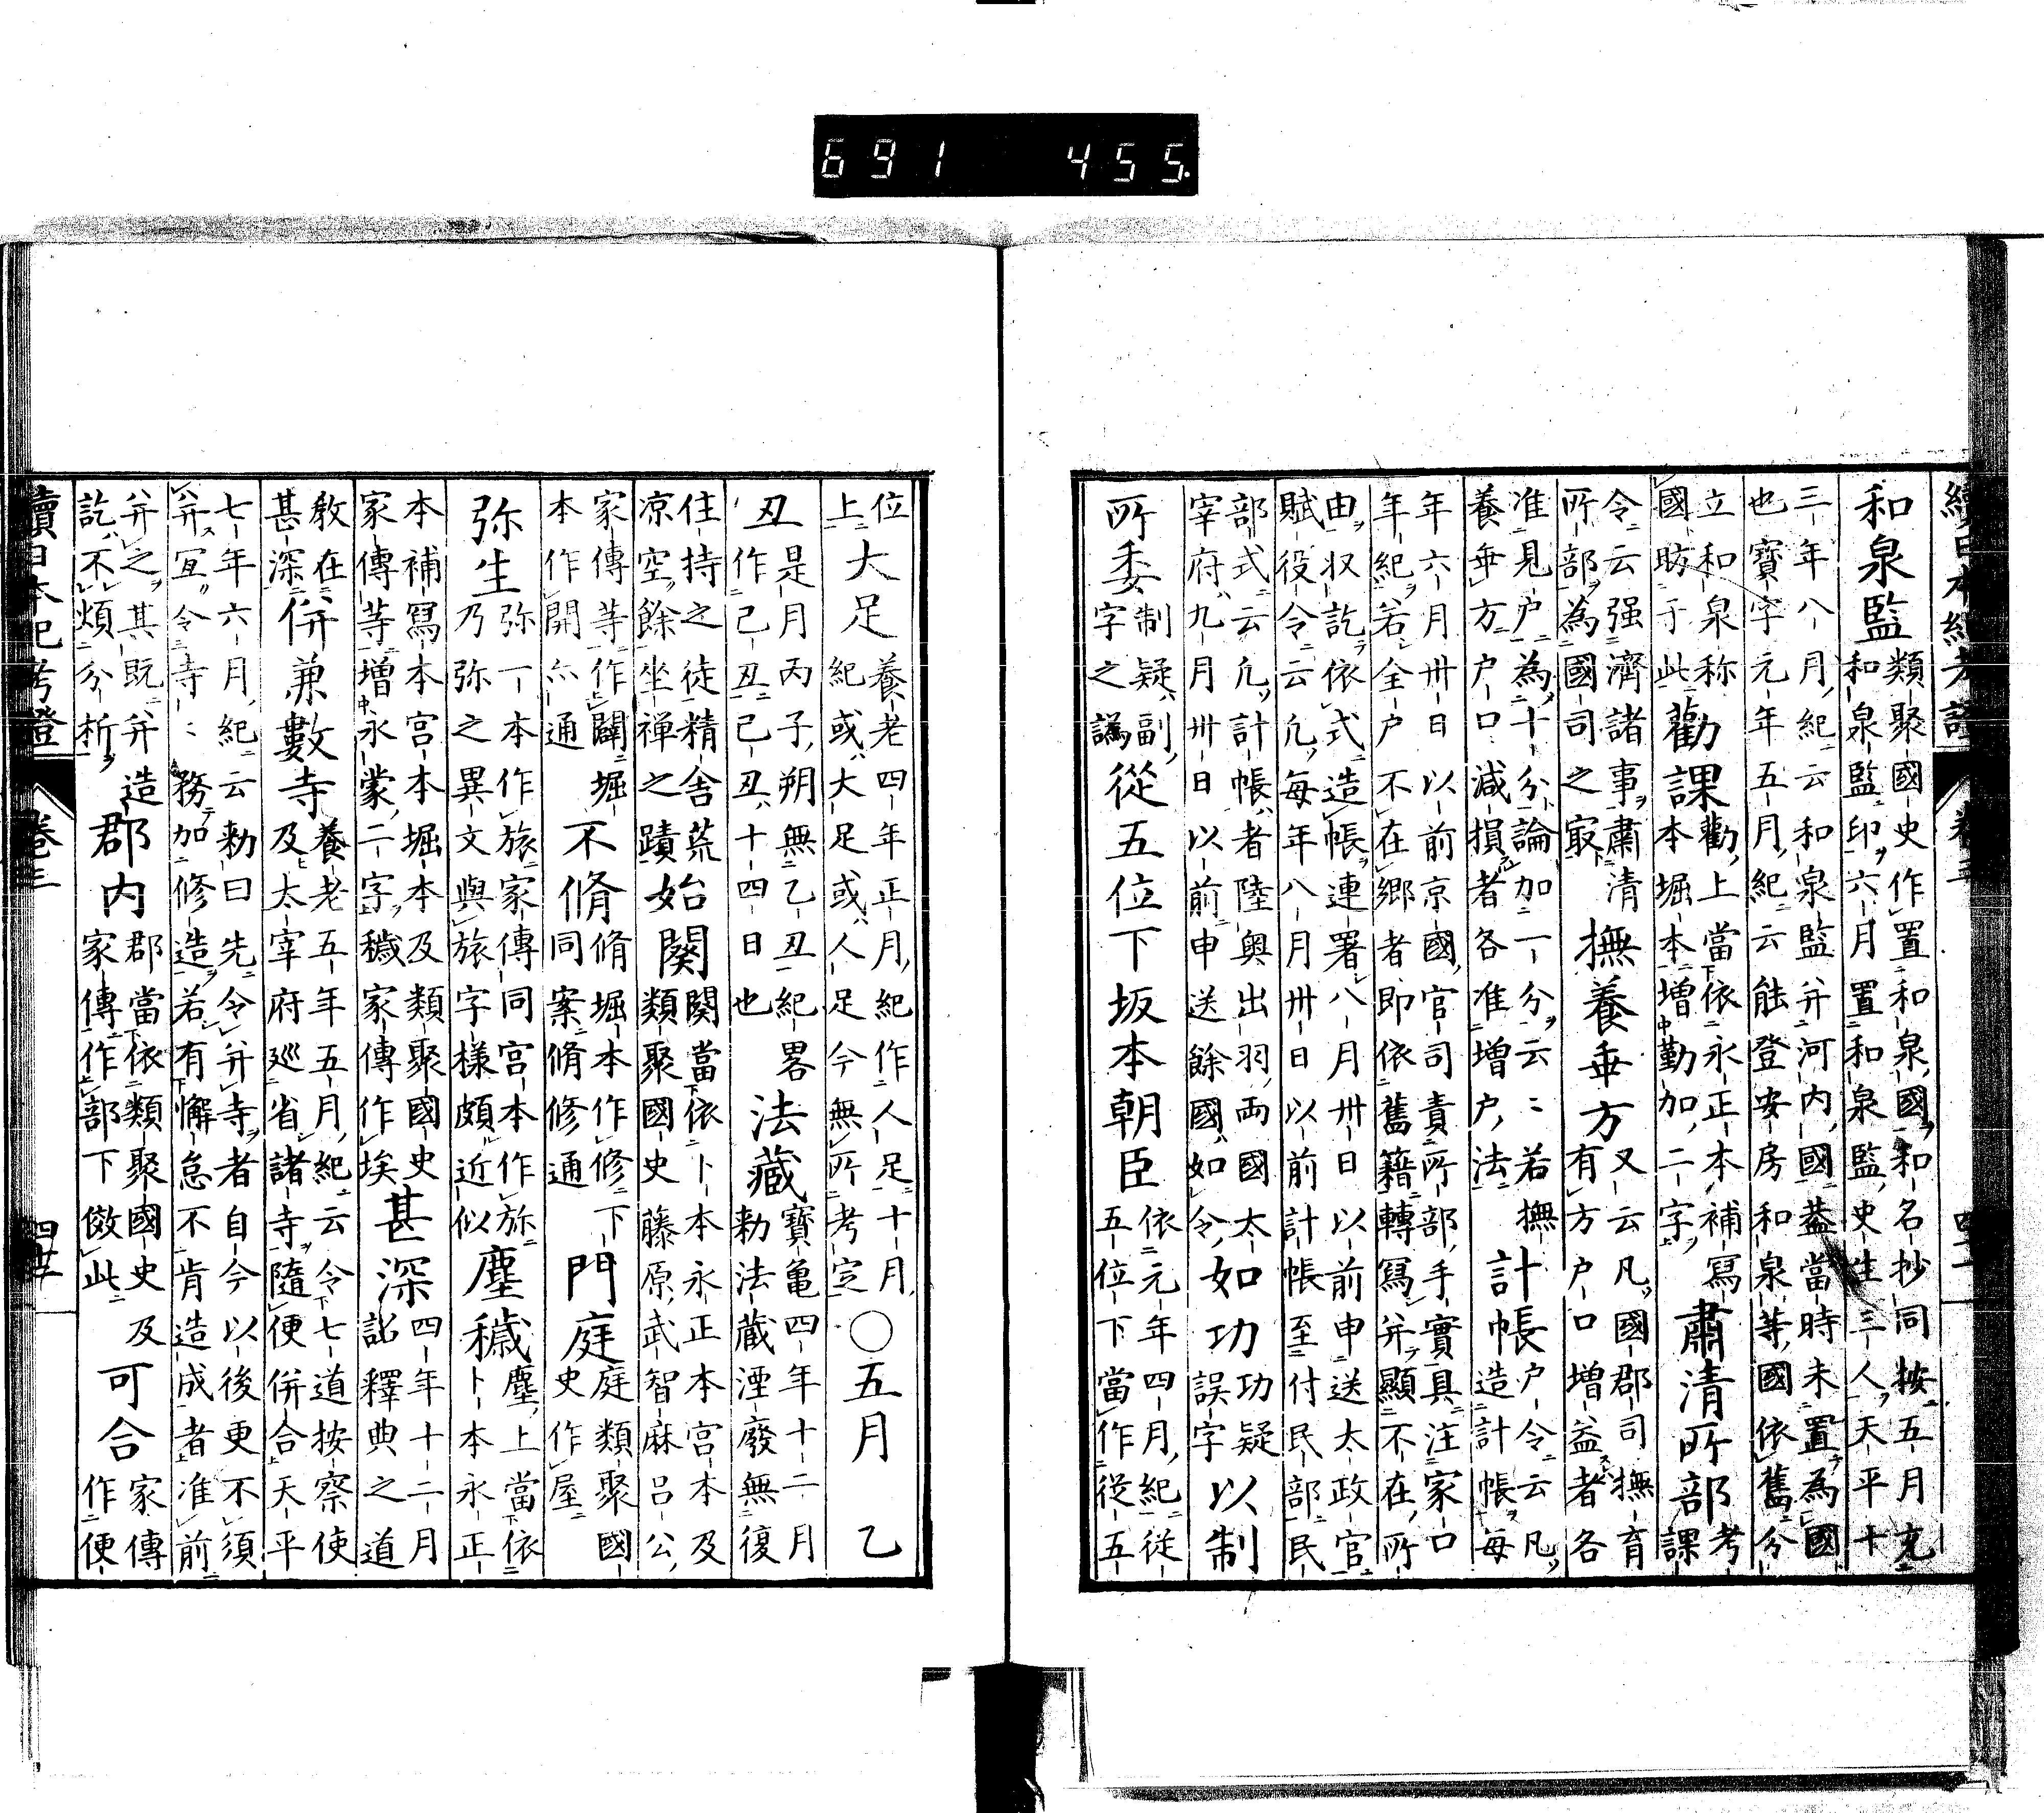 691 455
續日本紀考證 卷三 四十一
和泉監類聚國史作置和泉國和名抄同按五月充
和泉監印六月置和泉監史生三人天平十
三年八月紀云和泉監并河内國葢當時未置為國
也寶字元年五月紀云能登安房和泉等國依舊分
立和泉称勸課勸上當依永正本補寫肅清所部考
國昉于此本堀本增勤加二字課
令云强濟諸事肅清撫養垂方又云凡國郡司撫育
所部為國司之㝡有方户口增益者各
准見户為十分論加一分云〻若撫計帳户令云凡
養垂方户口減損者各准增户法造計帳每
年六月卅日以前京國官司責所部手實具注家口
年紀若全户不在鄉者即依舊籍轉寫并顯不在所
由収訖依式造帳連署八月卅日以前申送太政官
賦役令云凢每年八月卅日以前計帳至付民部民
部式云凢計帳者陸奥出羽兩國太如功功疑以制
宰府九月卅日以前申送餘國如令誤字
所委制疑副從五位下坂本朝臣依元年四月紀從
字之譌五位下當作從五
位大足養老四年正月紀作人足十月○五月乙
上紀或大足或人足今無所考定
丑是月丙子朔無乙丑紀畧法藏寶龜四年十二月
作己丑己丑十四日也勅法蔵湮廢無復
住持之徒精舍荒始闋闋當依卜本永正本宮本及
凉空餘坐禅之蹟類聚國史藤原武智麻呂公
家傳等作闢堀不脩脩堀本作修下門庭庭類聚國
本作開亦通同案脩修通史作屋
弥生弥一本作旀家傳同宮本作旀塵穢塵上當依
乃弥之異文與旅字樣頗近似卜本永正
本補寫本宮本堀本及類聚國史甚深四年十二月
家傳等增永蒙二字穢家傳作埃詔釋典之道
教在併兼數寺養老五年五月紀云令七道按察使
甚深及太宰府巡省諸寺隨便併合天平
七年六月紀云勅曰先令并寺者自今以後更不須
并宜令寺〻務加修造若有懈怠不肯造成者准前
并之其既并造郡内郡當依類聚國史及可合家傳
訖不煩分析家傳作部下傚此作便
續日本紀考證 卷三 四十